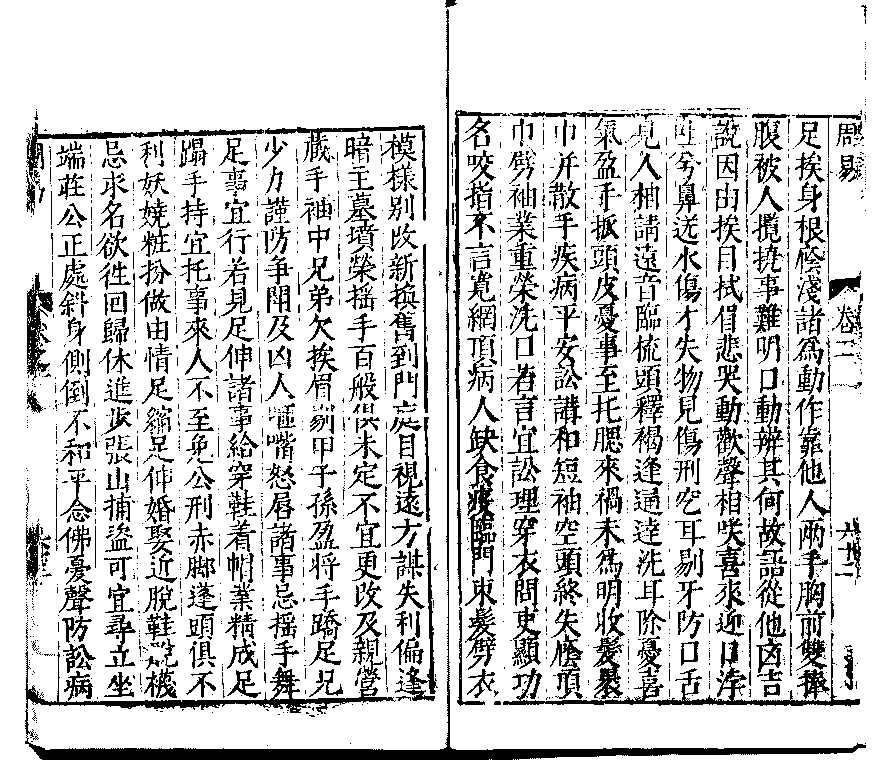 周易 卷二 六十二
足挨身根陰淺諸為動作靠他人兩手胸前雙捧
腹被人攬撓事難明口動辨其何故語從他卤吉
說因由挨目拭眉悲哭動歡聲相咲喜來迎口渟
吐兮鼻迸水傷才失物見傷刑空耳剔牙防口舌
見人相請遠音臨梳頭釋褐逢通達洗耳除憂喜
氣盈手抓頭皮憂事至托腮來禍未為明收髮裹
巾并散手疾病平安訟講和短袖空頭終失陰頂
巾劈袖業重榮洗口若言宜訟理穿衣問吏顯功
名咬指不言覓網頂病人缺食疫臨門束髮劈衣
模樣別改新換舊到門庭目視遠方謀失利偏逢
暗王墓墳榮搖手百般俱未定不宜更改及親營
藏手袖中兄弟欠挨眉剔甲子孫盈將手蹻足兄
少力謹防爭鬧及凶人嘴怒唇諸事忌搖手舞
足事宜行若見足伸諸事給穿鞋着帽業精成足
躡手持宜托事來人不至免公刑赤脚蓬頭俱不
利妖嬈粧扮做由情足縮足伸婚娶近脫鞋襪
忌求名欲徃回歸休進步張山捕盜可宜尋立坐
端莊公正處斜身側倒不和平念佛憂聲防訟病